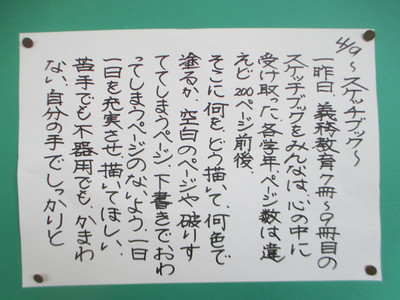 4/9 ～スケッチブック～
一昨日、義務教育7冊～9冊目の
スケッチブックをみんなは、心の中に
受け取った。各学年、ページ数は違
えど200ページ前後。
そこに何を、どう描いて、何色で
塗るか。空白のページや破りす
ててしまうページ、下書きでおわ
ってしまうページのない、よう、一日
一日を充実させ、描いてほしい。
苦手でも不器用でも、かまわ
ない、自分の手でしっかりと